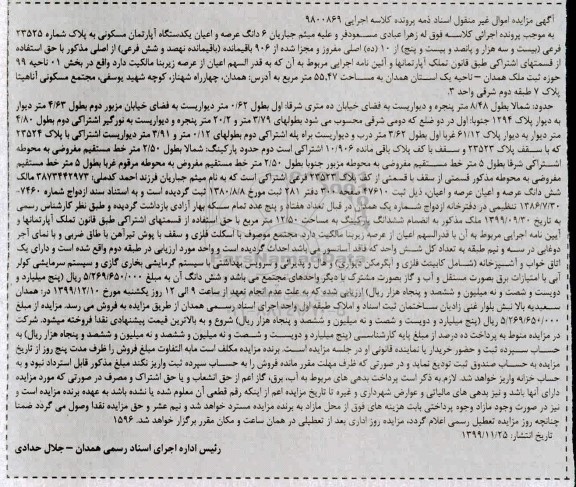 آگهی مزایده اموال غیر منقول اسناد ذمه پرونده کلاسه اجرایی ۹۸۰۰۸۶۹
به موجب پرونده اجرائی کلاسه فوق له زهرا عبادی مسعودفر و علیه میثم جباریان ۶ دانگ عرصه و اعیان یکدستگاه آپارتمان مسکونی به پلاک شماره ۲۳۵۲۵
فرعی (بیست و سه هزار و پانصد و بیست و پنج) از ۱۰ (ده) اصلی مفروز و مجزا شده از ۹۰۶ باقیمانده (باقیمانده نهصد و شش فرعی) از اصلی مذکور با حق استفاده
از قسمتهای اشتراکی طبق قانون تملک آپارتمانها و آئین نامه اجرایی مربوط به آن که به قدر السهم اعیان از عرصه زیربنا مالکیت دارد واقع در بخش ۰۱ ناحیه ۹۹
حوزه ثبت ملک همدان – ناحیه یک استان همدان به مساحت ۵۵.۴۷ متر مربع به آدرس: همدان، چهارراه شهناز، کوچه شهید یوسفی، مجتمع مسکونی آناهیتا
پلاک ۷ طبقه دوم شرقی واحد ۳.
حدود: شمالا بطول ۸/۴۸ متر پنجره و دیواریست به فضای خیابان ده متری شرقا: اول بطول ۰/۶۲ متر دیواریست به فضای خیابان مزبور دوم بطول ۴/۶۳ متر دیوار
به دیوار پلاک ۱۲۹۴ جنوبا: اول در دو ضلع که دومی شرقی محسوب می شود بطولهای ۳/۷۹ متر و ۲۰/۲ متر پنجره و دیواریست به نورگیر اشتراکی دوم بطول ۴/۸۰
متر دیوار به دیوار پلاک ۶۱/۱۲ غربا اول بطول ۳/۶۲ متر درب و دیواریست براه پله اشتراکی دوم بطولهای ۰/۱۲ متر و ۳/۹۱ متر دیواریست اشتراکی با پلاک ۲۳۵۲۴
که با سقف پلاک ۲۳۵۲۳ و سقف با کف پلاک باقی مانده ۱۰/۹۰۶ اشتراکی است دوم حدود پارکینگ: شمالا بطول ۲/۵۰ متر خط مستقیم مفروضی به محوطه
اشتراکی شرقا بطول ۵ متر خط مستقیم مفروضی به محوطه مزبور جنوبا بطول ۲/۵۰ متر خط مستقیم مفروض به محوطه مرقوم غربا بطول ۵ متر خط مستقیم
مفروضی به محوطه مذکور قسمتی از سقف با قسمتی از کف پلاک ۲۳۵۲۳ فرعی اشتراکی است که به نام میثم جباریان فرزند احمد کدملی: ۳۸۷۳۴۴۲۹۷۳ مالک
شش دانگ عرصه و اعیان عرصه و اعیان، ذیل ثبت ۴۷۶۱۰ صفحه ۴ دفتر ۲۸۱ ثبت مورخ ۱۳۸۰/۸/۸ ثبت گردیده است و به استناد سند ازدواج شماره ۷۴۶۰–
۱۳۸۶/۷/۳۰ تنظیمی در دفترخانه ازدواج شماره یک همدان در قبال تعداد هفتاد و پنج عدد تمام سکه بهار آزادی بازداشت گردیده و طبق نظر کارشناس رسمی
به تاریخ ۱۳۹۹/۰۹/۳۰ ملک مذکور به انضمام ششدانگ پارکینگ به مساحت ۱۲/۵۰ متر مربع با حق استفاده از قسمتهای اشتراکی طبق قانون تملک آپارتمانها و
آیین نامه اجرایی مربوط به آن با قدرالسهم اعیان از عرصه زیربنا مالکیت دارد مجتمع موصوف با اسکلت فلزی و سقف با پوش تیرآهن با طاق ضربی و با نمای آجر
دوغابی در سه و نیم طبقه به تعداد کل شش واحد که فاقد آسانسور می باشد احداث گردیده است و واحد مورد ارزیابی در طبقه دوم واقع شده است و دارای یک
اتاق خواب و آشپزخانه (شامل کابینت فلزی و اپکرمکن دیواری) و هال و پذیرائی و سرویس بهداشتی با سیستم گرمایشی بخاری گازی و سیستم سرمایشی کولر
آبی با امتیازات برق بصورت مستقل و آب و گاز بصورت مشترک با دیگر واحدهای مجتمع می باشد و شش دانگ آن به مبلغ ۵/۲۶۹/۶۵۰/۰۰۰ ریال (پنج میلیارد و
دویست و شصت و نه میلیون و ششصد و پنجاه هزار ریال) ارزیابی شده که به علت عدم انجام تعهد از ساعت ۹ الی ۱۲ روز یکشنبه مورخ ۱۳۹۹/۱۲/۱۰ در: همدان
سعیدیه بالا نبش بلوار غنی زادیان ساختمان ثبت اسناد و املاک طبقه اول واحد اجرای اسناد رسمی همدان از طریق مزایده به فروش می رسد. مزایده از مبلغ
۵/۲۶۹/۶۵۰/۰۰۰ ریال (پنج میلیارد و دویست و شصت و نه میلیون و ششصد و پنجاه هزار ریال) شروع و به بالاترین قیمت پیشنهادی نقدا فروخته میشود. شرکت
در مزایده منوط به پرداخت ده درصد از مبلغ پایه کارشناسی (پنج میلیارد و دویست و شصت و نه میلیون و ششصد و پنجاه هزار ریال) به
حساب سپرده ثبت و حضور خریدار یا نماینده قانونی او در جلسه مزایده است. برنده مزایده مکلف است مابه التفاوت مبلغ فروش را ظرف مدت پنج روز از تاریخ
مزایده به حساب صندوق ثبت تودیع نماید و در صورتی که ظرف مهلت مقرر مانده فروش را به حساب سپرده ثبت واریز نکند مبلغ مذکور قابل استرداد نبود و به
حساب خزانه واریز خواهد شد. لازم به ذکر است پرداخت بدهی های مربوط به آب، برق، گاز اعم از حق انشعاب و یا حق اشتراک و مصرف در صورتی که مورد مزایده
دارای آنها باشد و نیز بدهی های مالیاتی و عوارض شهرداری و غیره تا تاریخ مزایده اعم از اینکه رقم قطعی آن معلوم شده یا نشده باشد به عهده برنده مزایده است و
نیز در صورت وجود مازاد وجوه پرداختی بابت هزینه های فوق از محل مازاد به برنده مزایده مسترد خواهد شد و نیم عشر و حق مزایده نقدا وصول می گردد ضمنا
چنانچه روز مزایده تعطیل رسمی اعلام گردد، مزایده روز اداری بعد از تعطیلی در همان ساعت و مکان مقرر برگزار خواهد شد. ۱۵۹۶
تاریخ انتشار: ۱۳۹۹/۱۱/۲۵
رئیس اداره اجرای اسناد رسمی همدان – جلال حدادی